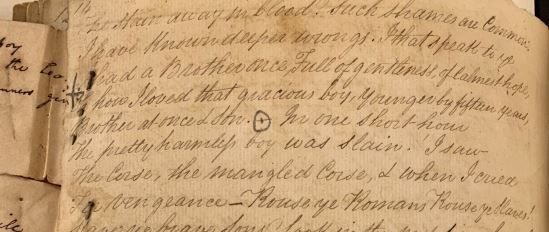 14
The stain away in blood! Such shames are Common.
I have known deeper wrongs. I that speak to ye
I had a Brother once, Full of gentleness, of calmest hope,
how I loved that gracious boy, Younger by fifteen years,
Brother at once & Son. In one short hour
The pretty harmless boy was slain. I saw
The Corse, the mangled Corse, & when I cried
For Vengeance — Rouse ye Romans Rouse ye Slaves!
Have ye brave Sons? Look in the
boy
the